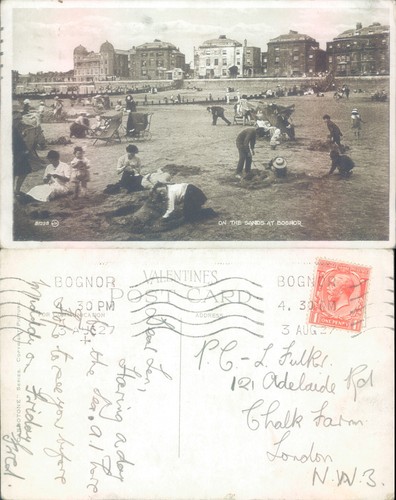 ON THE SANDS AT BOGNOR
BOGNOR
4.30 PM
27
VALENTINES
POST CARD
ADDRESS
BOGNOR
4.30 PM
3 AUG 27
Dear Len,
Having a day
by the sea. All here
to see you before
Friday
Fred
P.C. L. Fulker
121 Adelaide Rd
Chalk Farm
London
N.W.3.